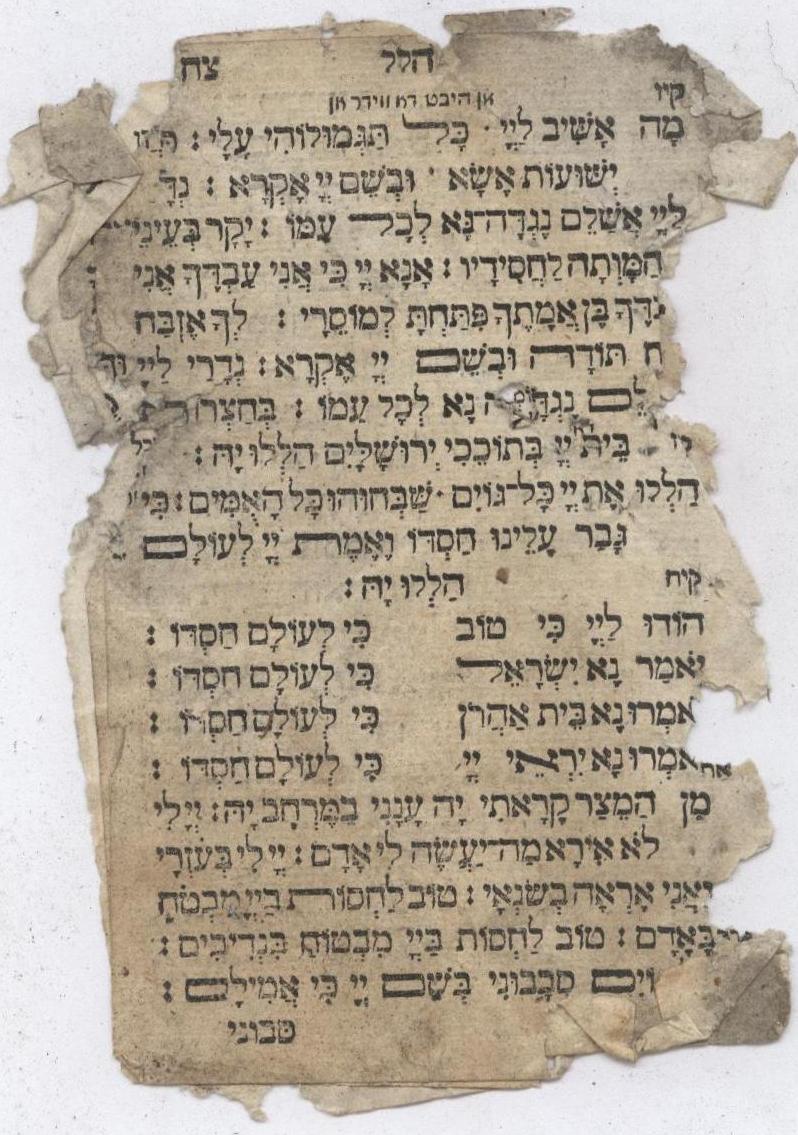 הלל צח
אן היבט דא ווידר אן
קיו
מָה אָשִׁיב לַיְיָ · כָּל תַּגְמוּלוֹהִי עָלָי :
יְשׁוּעוֹת אֶשָּׂא · וּבְשֵׁם יְיָ אֶקְרָא :
לַיְיָ אֲשַׁלֵּם נֶגְדָה־נָּא לְכָל עַמּוֹ : יָקָר בְּעֵינֵי
הַמָּוְתָה לַחֲסִידָיו : אָנָּא יְיָ כִּי אֲנִי עַבְדֶּךָ אֲנִי
בֶּן אֲמָתֶךָ פִּתַּחְתָּ לְמוֹסֵרָי : לְךָ אֶזְבַּח
תּוֹדָה וּבְשֵׁם יְיָ אֶקְרָא : נְדָרַי לַיְיָ
נָא לְכָל עַמּוֹ :
בֵּית יְיָ בְּתוֹכֵכִי יְרוּשָׁלָיִם הַלְלוּיָהּ :
הַלְלוּ אֶת יְיָ כָּל־גּוֹיִם · שַׁבְּחוּהוּ כָּל הָאֻמִּים : כִּי
גָבַר עָלֵינוּ חַסְדּוֹ וֶאֱמֶת יְיָ לְעוֹלָם
הַלְלוּיָהּ :
קיח
הוֹדוּ לַיְיָ כִּי טוֹב כִּי לְעוֹלָם חַסְדּוֹ :
יֹאמַר נָא יִשְׂרָאֵל כִּי לְעוֹלָם חַסְדּוֹ :
אמְרוּ נָא בֵית אַהֲרֹן כִּי לְעוֹלָם חַסְדּוֹ :
אמְרוּ נָא יִרְאֵי יְיָ כִּי לְעוֹלָם חַסְדּוֹ :
מִן הַמֵּצַר קָרָאתִי יָּהּ עָנָנִי בַמֶּרְחָב יָהּ : יְיָ לִי
לֹא אִירָא מַה־יַּעֲשֶׂה לִי אָדָם : יְיָ לִי בְּעֹזְרָי
וַאֲנִי אֶרְאֶה בְשֹׂנְאָי : טוֹב לַחְסוֹת בַּיְיָ מִבְּטֹחַ
בָּאָדָם : טוֹב לַחְסוֹת בַּיְיָ מִבְּטוֹחַ בִּנְדִיבִים :
סְבָבוּנִי בְּשֵׁם יְיָ כִּי אֲמִילַם :
סבוני